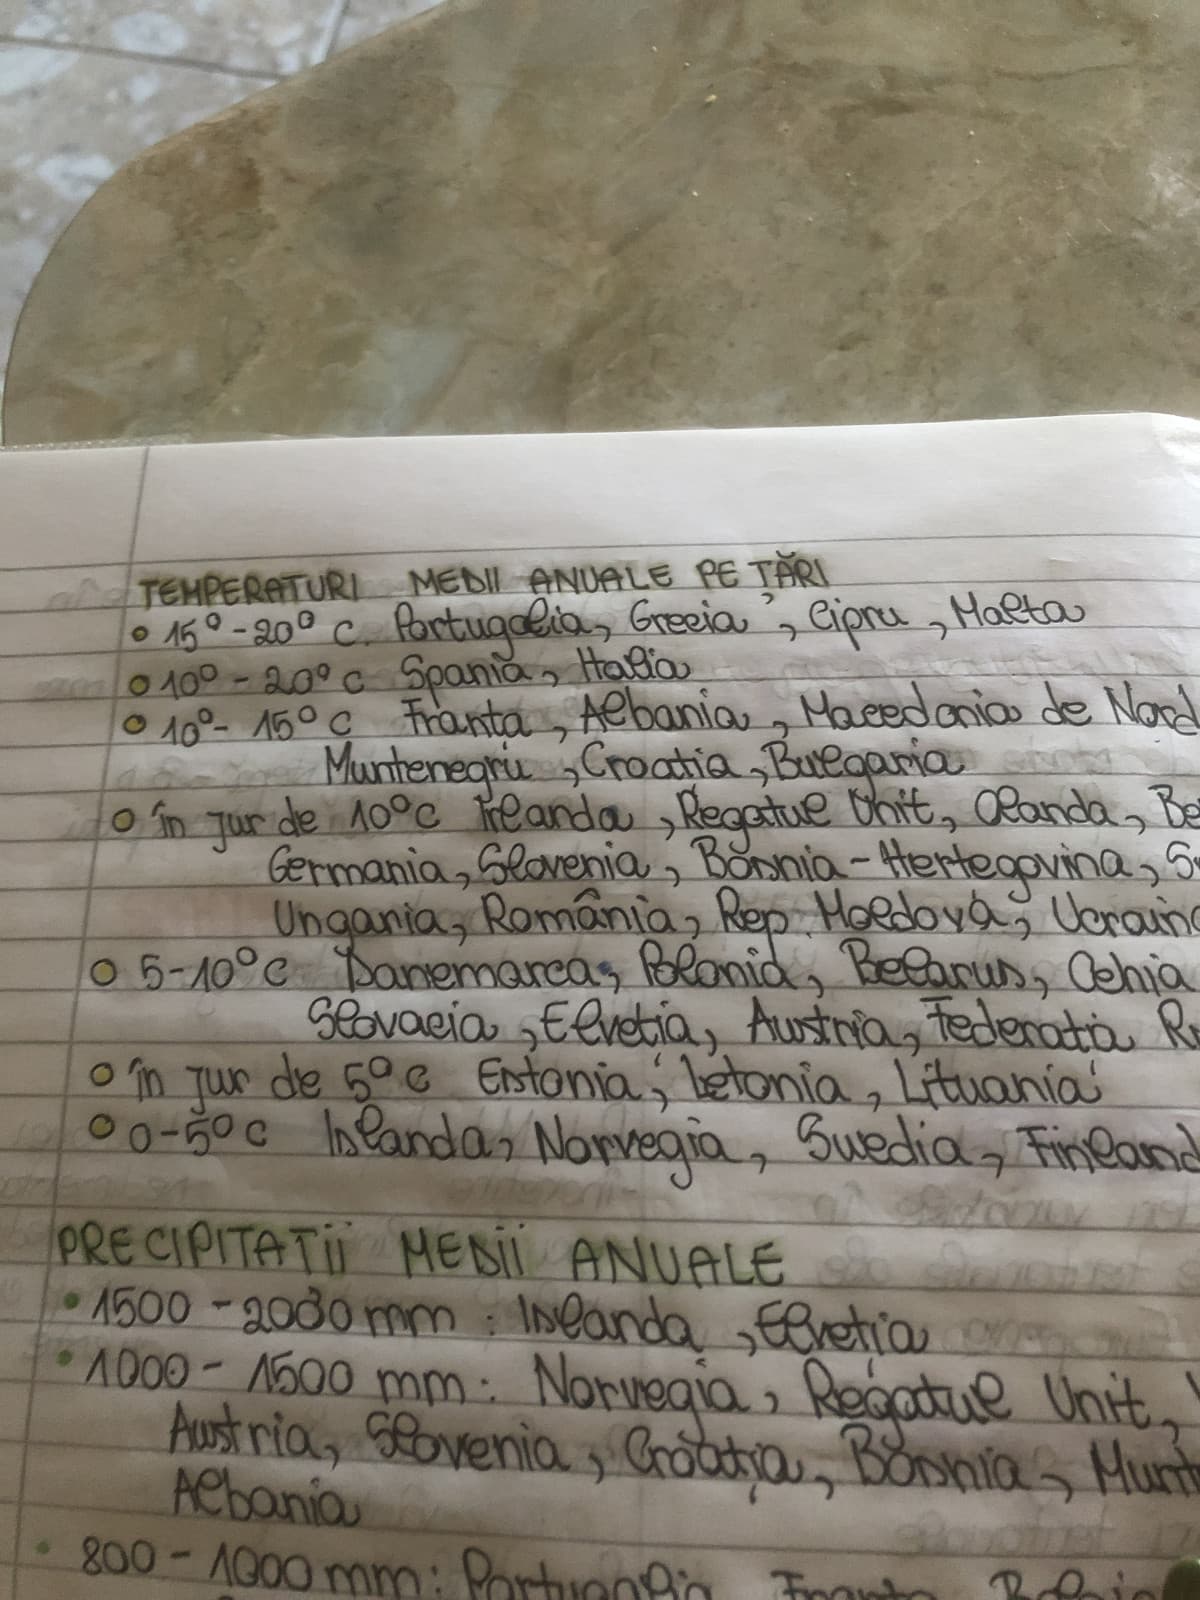 TEMPERATURI MEDII ANUALE PE ȚĂRI
• 15° - 20° C Portugalia, Grecia, Cipru, Malta
• 10° - 20° C Spania, Italia
• 10° - 15° C Franța, Albania, Macedonia de Nord
Muntenegru, Croația, Bulgaria
• în jur de 10°C Irlanda, Regatul Unit, Olanda, Be
Germania, Slovenia, Bosnia - Herțegovina, S
Ungaria, România, Rep. Moldova, Ucraina
• 5-10°C Danemarca, Polonia, Belarus, Cehia
Slovacia, Elveția, Austria, Federația R
• în jur de 5°C Estonia, Letonia, Lituania
• 0-5°C Islanda, Norvegia, Suedia, Finland
PRECIPITAȚII MEDII ANUALE
• 1500 - 2000 mm : Islanda, Elveția
• 1000 - 1500 mm : Norvegia, Regatul Unit,
Austria, Slovenia, Croația, Bosnia, Munt
Albania
• 800 - 1000 mm : Portugalia, Franța, Belgia